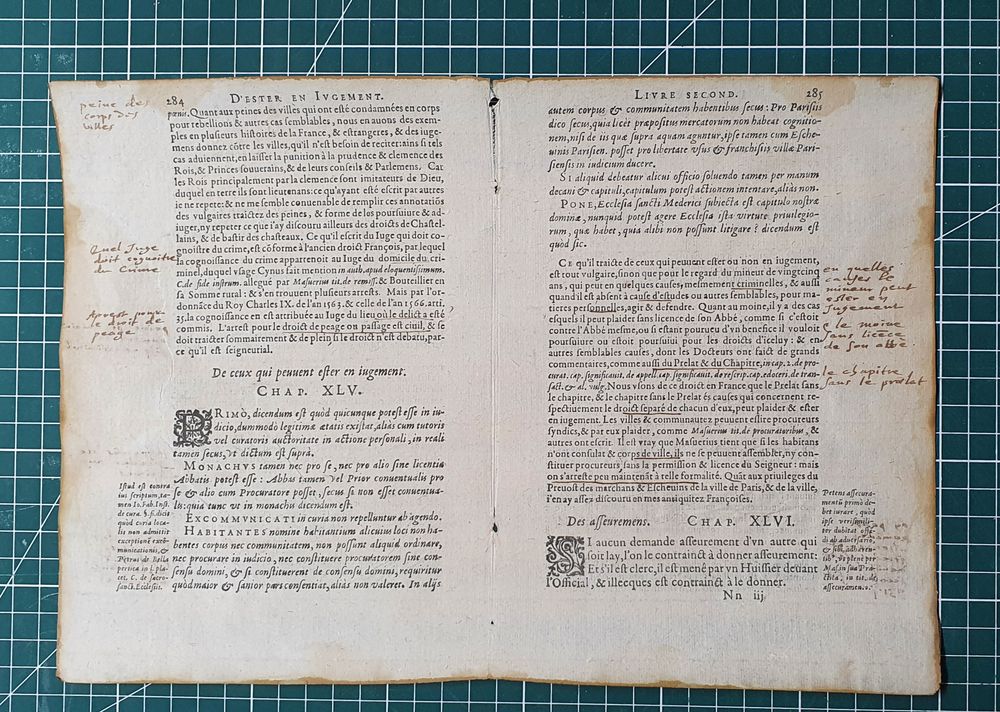 peine des
corps des
villes
284 D'ESTER EN IVGEMENT.
pœnis. Quant aux peines des villes qui ont esté condamnées en corps
pour rebellions & autres cas semblables, nous en auons des exem-
ples en plusieurs histoires de la France, & estrangeres, & des iuge-
mens donnez cõtre les villes, qu'il n'est besoin de reciter: ains si tels
cas aduiennent, en laisser la punition à la prudence & clemence des
Rois, & Princes souuerains, & de leurs conseils & Parlemens. Car
les Rois principalement par la clemence sont imitateurs de Dieu,
duquel en terre ils sont lieutenans: ce qu'ayant esté escrit par autres
ie ne repete: & ne me semble conuenable de remplir ces annotatiõs
des vulgaires traictez des peines, & forme de les poursuiure & ad-
iuger, ny repeter ce que i'ay discouru ailleurs des droicts de Chastel-
lains, & de bastir des chasteaux. Ce qu'il escrit du Iuge qui doit co-
gnoistre du crime, est cõforme à l'ancien droict François, par lequel
la cognoissance du crime appartenoit au Iuge du domicile du cri-
minel, duquel vsage Cynus fait mention in auth. apud eloquentissimum.
C. de fide instrum. allegué par Masuerius tit. de remiss. & Bouteillier en
sa Somme rural: & s'en trouuent plusieurs arrests. Mais par l'or-
donnãce du Roy Charles IX. de l'an 1563. & celle de l'an 1566. arti.
35. la cognoissance en est attribuée au Iuge du lieu où le delict a esté
commis. L'arrest pour le droict de peage ou passage est ciuil, & se
doit traicter sommairement & de plein si le droict n'est debatu, par-
ce qu'il est seigneurial.
Quel Juge
doit cognoitre
du Crime
le droit de
peage
De ceux qui peuuent ester en iugement.
CHAP. XLV.
PRIMÒ, dicendum est quòd quicunque potest esse in iu-
dicio, dummodò legitimæ ætatis existat, alias cum tutoris
vel curatoris auctoritate in actione personali, in reali
tamen secus, vt dictum est suprà.
MONACHVS tamen nec pro se, nec pro alio sine licentia
Abbatis potest esse: Abbas tamen vel Prior conuentualis pro
se & alio cum Procuratore posset, secus si non esset conuentua-
lis: quia tunc vt in monachis dicendum est.
EXCOMMVNICATI in curia non repelluntur ab agendo.
HABITANTES nomine habitantium alicuius loci non ha-
bentes corpus nec communitatem, non possunt aliquid ordinare,
nec procurare in iudicio, nec constituere procuratorem sine con-
sensu domini, & si constituerent de consensu domini, requiritur
quòd maior & sanior pars consentiat, aliàs non valeret. In aliis
Istud est contra
ius scriptum, ta-
men Io. Fab. Inst.
de cura. §. fi. dicit
quòd curia loca-
lis non admittit
exceptionē exco-
municationis, &
Petrus de Bella
pertica in l. pla-
cet. C. de sacro-
sanct. Ecclesiis.
LIVRE SECOND. 285
autem corpus & communitatem habentibus secus: Pro Parisiis
dico secus, quia licet præpositus mercatorum non habeat cognitio-
nem, nisi de iis quæ supra aquam aguntur, ipse tamen cum Esche-
uinis Parisien. posset pro libertate vsus & franchisiis villæ Pari-
siensis in iudicium ducere.
SI aliquid debeatur alicui officio soluendo tamen per manum
decani & capituli, capitulum potest actionem intentare, aliàs non.
PONE, Ecclesia sancti Mederici subiecta est capitulo nostræ
dominæ, nunquid potest agere Ecclesia ista virtute priuilegio-
rum, quæ habet, quia alibi non possunt litigare? dicendum est
quòd sic.
CE qu'il traicte de ceux qui peuuent ester ou non en iugement,
est tout vulgaire, sinon que pour le regard du mineur de vingt cinq
ans, qui peut en quelques causes, mesmement criminelles, & aussi
quand il est absent à cause d'estudes ou autres semblables, pour ma-
tieres personnelles, agir & defendre. Quant au moine, il y a des cas
esquels il peut plaider sans licence de son Abbé, comme si c'estoit
contre l'Abbé mesme, ou si estant pourueu d'vn benefice il vouloit
poursuiure ou estoit poursuiui pour les droicts d'iceluy: & en
autres semblables causes, dont les Docteurs ont faict de grands
commentaires, comme aussi du Prelat & du Chapitre, in cap. 2. de pro-
curat. cap. significauit. de appell. cap. significauit. de rescrip. cap. edoceri. de tran-
sact. & al. vulg. Nous vsons de ce droict en France que le Prelat sans
le chapitre, & le chapitre sans le Prelat és causes qui concernent re-
spectiuement le droict separé de chacun d'eux, peut plaider & ester
en iugement. Les villes & communautez peuuent eslire procureurs
syndics, & par eux plaider, comme Masuerius tit. de procuratoribus, &
autres ont escrit. Il est vray que Masuerius tient que si les habitans
n'ont consulat & corps de ville, ils ne se peuuent assembler, ny con-
stituer procureurs sans la permission & licence du Seigneur: mais
on s'arreste peu maintenāt à telle formalité. Quāt aux priuileges du
Preuost des marchans & Escheuins de la ville de Paris, & de la ville,
i'en ay assez discouru en mes antiquitez Françoises.
en quelles
causes le
mineur peut
ester en
Jugement
& le moine
sans licēce
de son abbé
le chapitre
sans le prelat
Des asseuremens. CHAP. XLVI.
SI aucun demande asseurement d'vn autre qui
soit lay, l'on le contrainct à donner asseurement:
Et s'il est clerc, il est mené par vn Huissier deuant
l'Official, & illecques est contrainct à le donner.
Nn iij
Petens assecura-
mentũ primò de-
bet iurare, quòd